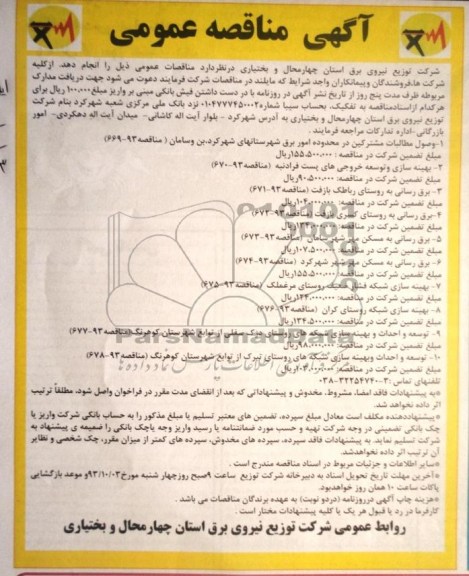 آگهی مناقصه عمومی
شرکت توزیع نیروی برق استان چهارمحال و بختیاری درنظردارد مناقصات عمومی ذیل را انجام دهد. ازکلیه
شرکت ها،فروشندگان وپیمانکاران واجد شرایط که مایلند در مناقصات شرکت فرمایند دعوت می شود جهت دریافت مدارک
مربوطه ظرف مدت پنج روز از تاریخ نشر آگهی در روزنامه با در دست داشتن فیش بانکی مبنی بر واریز مبلغ ۱۰۰,۰۰۰ ریال برای
هرکدام ازاسنادمناقصه به تفکیک، بحساب سیبا شماره ۰۱۰۴۷۷۷۴۵۰۰۰۲ نزد بانک ملی مرکزی شعبه شهرکرد بنام شرکت
توزیع نیروی برق استان چهارمحال و بختیاری به آدرس شهرکرد - بلوار آیت اله کاشانی- میدان آیت اله دهکردی- امور
بازرگانی -اداره تدارکات مراجعه فرمایند .
۱-وصول مطالبات مشترکین در محدوده امور برق شهرستانهای شهرکرد،بن وسامان (مناقصه۹۳-۶۶۹)
مبلغ تضمین شرکت در مناقصه : ۱۵۵,۵۰۰,۰۰۰ریال
۲- بهینه سازی وتوسعه خروجی های پست فرادنبه (مناقصه۹۳-۶۷۰)
مبلغ تضمین شرکت در مناقصه: ۹۰,۵۰۰,۰۰۰ریال
۳- برق رسانی به روستای رباطک بازفت (مناقصه۹۳-۶۷۱)
مبلغ تضمین شرکت در مناقصه: ۱۰۴,۰۰۰,۰۰۰ریال
۴-برق رسانی به روستای کسری بازفت (مناقصه۹۳-۶۷۲)
مبلغ تضمین شرکت در مناقصه:
۵- برق رسانی به مسکن مهر شهر سامان (مناقصه۹۳-۶۷۳)
مبلغ تضمین شرکت در مناقصه: ۱۰۷,۵۰۰,۰۰۰ریال
۶- برق رسانی به مسکن مهر شهر شهرکرد (مناقصه۹۳-۶۷۴)
مبلغ تضمین شرکت در مناقصه: ۱۵۵,۵۰۰,۰۰۰ریال
۷- بهینه سازی شبکه فشار ضعیف روستای مرغملک (مناقصه۹۳-۶۷۵)
مبلغ تضمین شرکت در مناقصه: ۱۴۴,۰۰۰,۰۰۰ریال
۸- بهینه سازی شبکه روستای کران (مناقصه۹۳-۶۷۶)
مبلغ تضمین شرکت در مناقصه: ۱۳۴,۵۰۰,۰۰۰ریال
۹- توسعه و احداث و بهینه سازی شبکه های روستای سفلی از توابع شهرستان کوهرنگ(مناقصه۹۳-۶۷۷)
مبلغ تضمین شرکت در مناقصه: ۹۸,۰۰۰,۰۰۰ریال
۱۰- توسعه و احداث وبهینه سازی شبکه های روستای تبرک از توابع شهرستان کوهرنگ (مناقصه۹۳-۶۷۸)
مبلغ تضمین شرکت در مناقصه: ۱۰۳,۰۰۰,۰۰۰ریال
تلفنهای تماس :۳-۳۲۲۵۴۷۴۰-۰۳۸
*به پیشنهادات فاقد امضا، مشروط، مخدوش و پیشنهاداتی که بعد از انقضای مدت مقرر در فراخوان واصل شود، مطلقاً ترتیب
اثر داده نخواهد شد.
*پیشنهاددهنده مکلف است معادل مبلغ سپرده، تضمین های معتبر تسلیم یا مبلغ مذکور را به حساب بانکی شرکت واریز یا
چک بانکی تضمینی در وجه شرکت تهیه و حسب مورد ضمانتنامه یا رسید واریز وجه یاچک بانکی را ضمیمه ی پیشنهاد به
شرکت تسلیم نماید. به پیشنهادات فاقد سپرده، سپرده های مخدوش، سپرده های کمتر از میزان مقرر، چک شخصی و نظایر
آن ترتیب اثر داده نخواهدشد.
*سایر اطلاعات و جزئیات مربوط در اسناد مناقصه مندرج است .
*آخرین مهلت تاریخ تحویل اسناد به دبیرخانه شرکت توزیع ساعت ۹صبح روزچهار شنبه مورخ۹۳/۱۰/۰۳و موعد بازگشایی
پاکات ساعت ۱۰ همان روز خواهدبود.
*هزینه چاپ آگهی درروزنامه (دردو نوبت) به عهده برندگان مناقصات می باشد .
کارفرما در رد یا قبول هر یک یا کلیه پیشنهادات مختار است .
روابط عمومی شرکت توزیع نیروی برق استان چهارمحال و بختیاری
ParsNamadData